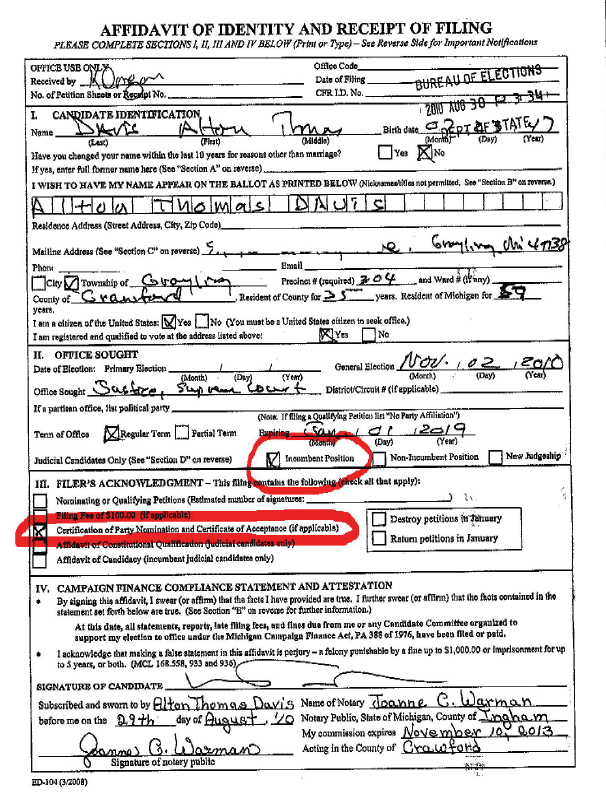 AFFIDAVIT OF IDENTITY AND RECEIPT OF FILING
PLEASE COMPLETE SECTIONS I, II, III AND IV BELOW (Print or Type) – See Reverse Side for Important Notifications
OFFICE USE ONLY
Office Code
Received by
Date of Filing
BUREAU OF ELECTIONS
No. of Petition Sheets or Receipt No.
CFR I.D. No.
2010 AUG 30 P 3:34
I. CANDIDATE IDENTIFICATION
DEPT OF STATE
Name Davis Alton Thomas Birth date
(Last) (First) (Middle) (Month) (Day) (Year)
Have you changed your name within the last 10 years for reasons other than marriage? Yes No
If yes, enter full former name here (See "Section A" on reverse)
I WISH TO HAVE MY NAME APPEAR ON THE BALLOT AS PRINTED BELOW (Nicknames/titles not permitted. See "Section B" on reverse.)
Alton Thomas DAVIS
Residence Address (Street Address, City, Zip Code)
Mailing Address (See "Section C" on reverse) Grayling
Phone Email
City Township of Grayling Precinct # (required) and Ward # (if any)
County of Crawford Resident of County for 35 years. Resident of Michigan for
years.
I am a citizen of the United States: Yes No (You must be a United States citizen to seek office.)
I am registered and qualified to vote at the address listed above: Yes No
II. OFFICE SOUGHT
Date of Election: Primary Election / / General Election Nov. 02 2010
(Month) (Day) (Year) (Month) (Day) (Year)
Office Sought Justice, Supreme Court District/Circuit # (if applicable)
If a partisan office, list political party
(Note: If filing a Qualifying Petition list "No Party Affiliation")
Term of Office Regular Term Partial Term Expiring Jan 01 2019
(Month) (Day) (Year)
Judicial Candidates Only (See "Section D" on reverse) Incumbent Position Non-Incumbent Position New Judgeship
III. FILER'S ACKNOWLEDGMENT – This filing contains the following (check all that apply):
Nominating or Qualifying Petitions (Estimated number of signatures:
Filing Fee of $100.00 (if applicable)
Destroy petitions in January
Certification of Party Nomination and Certificate of Acceptance (if applicable)
Affidavit of Constitutional Qualification (judicial candidates only)
Return petitions in January
Affidavit of Candidacy (incumbent judicial candidates only)
IV. CAMPAIGN FINANCE COMPLIANCE STATEMENT AND ATTESTATION
• By signing this affidavit, I swear (or affirm) that the facts I have provided are true. I further swear (or affirm) that the facts contained in the
statement set forth below are true. (See Section "E" on reverse for further information.)
At this date, all statements, reports, late filing fees, and fines due from me or any Candidate Committee organized to
support my election to office under the Michigan Campaign Finance Act, PA 388 of 1976, have been filed or paid.
• I acknowledge that making a false statement in this affidavit is perjury – a felony punishable by a fine up to $1,000.00 or imprisonment for up
to 5 years, or both. (MCL 168.558, 933 and 936)
SIGNATURE OF CANDIDATE
Subscribed and sworn to by Alton Thomas Davis Name of Notary Joanne C. Warman
before me on the 29th day of August, '10 Notary Public, State of Michigan, County of Ingham
My commission expires November 10, 2013
Joanne C. Warman Acting in the County of Crawford
Signature of notary public
ED-104 (3/2008)